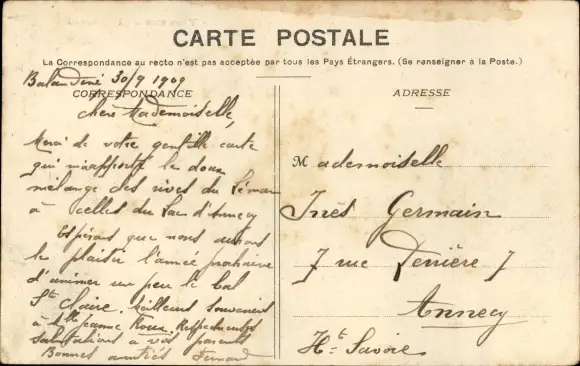 CARTE POSTALE
La Correspondance au recto n'est pas acceptée par tous les Pays Étrangers. (Se renseigner à la Poste.)
30/9 1909
CORRESPONDANCE
ADRESSE
Chère Mademoiselle,
Merci de votre gentille carte
qui m'apporte le doux
mélange des rives du Léman
à celles du Lac d'Annecy
Espérons que nous aurons
le plaisir l'année prochaine
d'animer un peu le bal
St Claire. Meilleurs souvenirs
à Mlle Jeanne Respectueuses
salutations à vos parents
Bonnes amitiés Fernand
Mademoiselle
Inès Germain
7 rue Perrière 7
Annecy
Hte Savoie